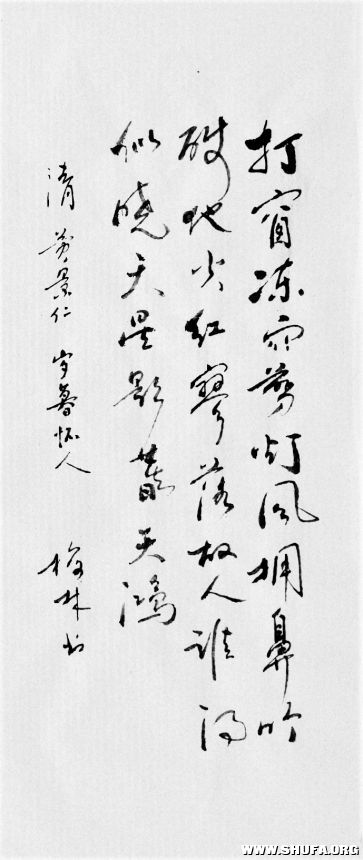 打窗冻雨剪灯风拥鼻吟
残地火红寥落故人谁得
似晓天星影暮天鸿
清 黄景仁 岁暮怀人
梅林书
WWW.SHUFA.ORG